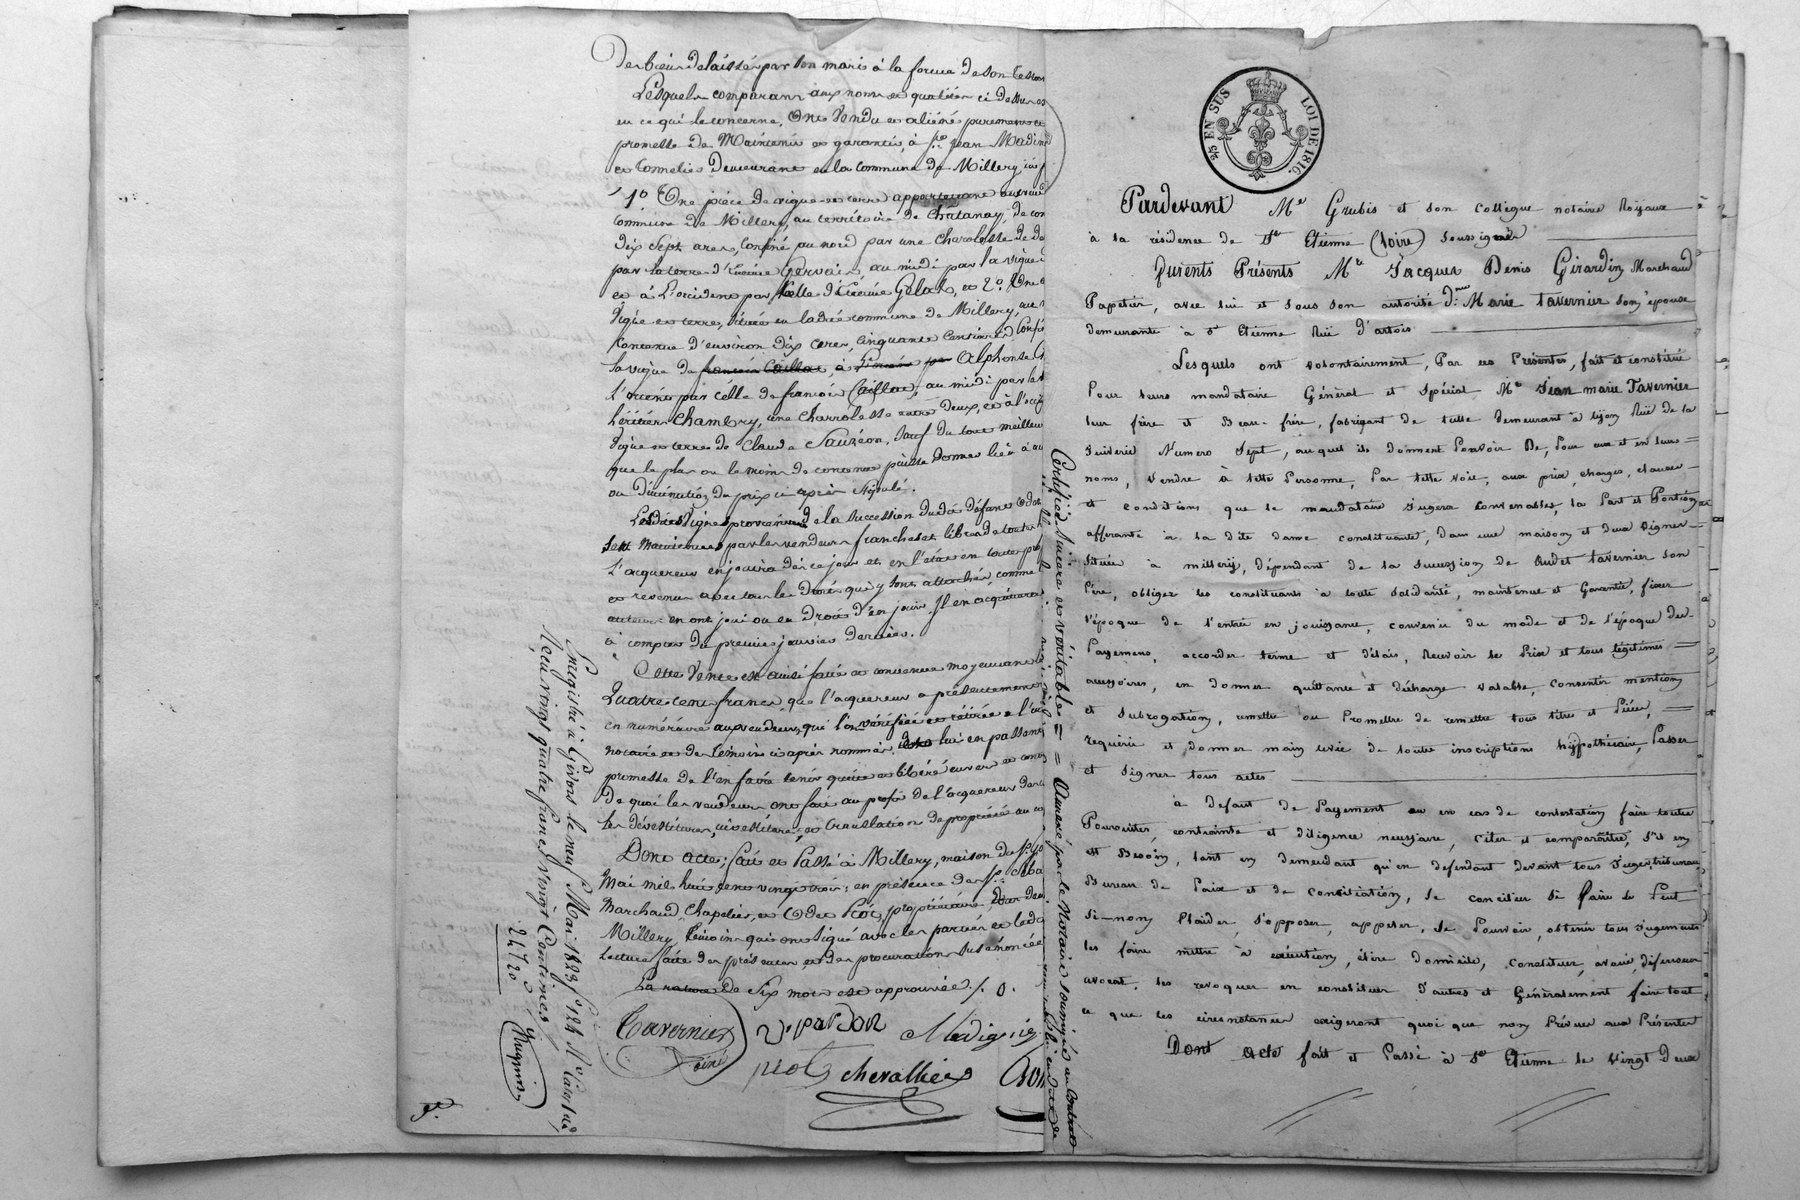 De bien delaissé par son maris à la forme de son testam
Lesquels comparans aux noms et qualités ci dessus et
en ce qui le concerne, Ont Vendu et aliéné purement et
promesse de Maintenir et garantir, à Sr. jean Madin
et tonnelier demeurant en la commune de Millery, ici p
1º Une pièce de vigne et terre appartenant
commune de Millery, au territoire de Chatanay, de con
dix sept ares, Confiné au nord par une Charolesse de de
par la terre d'Etienne Gervais, au midi par la vigne
et à L'occident par celle d'Etienne Gelas, et 2º. Une
Vigne et terre, située en ladite commune de Millery, au
Contenue d'environ dix ares, Cinquante Centiares Confi
la vigne de françois Caillat à par Alphonse
L'orient par celle de françois Caillat, au midi par la
héritiers Chambry, une Charrolesse entre deux, et à l'occid
Vigne et terre de Claude Sauzéon, Sauf du tout meilleu
que le plus ou le moins de contenue puisse donner lieu à au
ou diminution du prix ci après Stipulé.
Lesdites Vignes proviennent de la Succession dudit défunt
sont Maintenues par les vendeurs franches et libres de toutes
L'acquereur en jouira dès ce jour et en l'état en
et revenus avec tous les Droits qui y sont attachés, comme
auteurs en ont joui ou eu Droit d'en jouir. Il en acquittera
à compter du premier janvier dernier.
Cette Vente est ainsi faite et convenue moyennant
Quatre cent francs, que l'acquereur a présentement
en numéraire aux vendeurs, qui l'on vérifiée et retirée à l'
notaire et des témoins ci après nommés, lui en passent
promesse de l'en faire tenir quitte et libéré envers et
De quoi les vendeurs ont fait au profit de l'acquereur
les dévestitures, investitures, et translation de propriété au
Dont acte; fait et Passé à Millery, maison du Sr.
Mai mil huit cent vingt trois; en présence de Sr.
Marchand Chapelier, et Piot, propriétaire,
Millery témoins qui ont signé avec les parties et led
Lecture faite des présentes et des procurations sus énoncées
La rature de Six mots est approuvée./.
Tavernier
aîné
Ve. pardon
Madignié
piot
chevallier
Enregistré à Givors le neuf Mai 1823 fº 124
Reçu vingt quatre francs vingt Centimes
24 f 20 c
Certifiée Sincere et véritable
Annexé par le Notaire Soussigné au Contrat
2/5 EN SUS
LOI DE 1816.
Pardevant Me Grubis et son collègue notaire Royaux
à la résidence de St Etienne (Loire) soussignés
furents Présents Mr Jacques Denis Girardin Marchand
Papetier, avec lui et sous son autorité De. Marie Tavernier son épouse
demeurants à St Etienne Rüe d'artois
Lesquels ont volontairement, Par ces Présentes, fait et constitué
Pour leurs mandataire Général et Spécial Mr Jean marie Tavernier
leur frère et Beau-frère, fabriçant de tulle demeurant à Lyon Rüe de la
Juiverie Numero Sept, auquel ils donnent Pouvoir De, Pour eux et en leurs
noms, Vendre à telle Personne, Par telle Voie, aux prix, charges, clauses
et conditions que le mandataire Jugera convenables, la Part et Portion
afferante à la dite dame constituante, dans une maison et deux vignes
située à millerij, dépendant de la succession de Audet tavernier son
Père, obliger les constituants à toute Solidarité, maintenue et Garantie, fixer
l'époque de l'entrée en jouissance, convenir du mode et de l'époque des
Payemens, accorder terme et délais, Recevoir le Prix et tous légitimes
accessoires, en donner quittance et décharge valable, consentir mention
et subrogation, remettre ou Promettre de remettre tous titres et Pièces,
requérir et donner main levée de toutes inscriptions hypothécaires, Passer
et signer tous actes
à defaut de Payement ou en cas de contestation faire toutes
Poursuites, contrainte et diligence necessaire, Citer et comparaître, s'il en
est Besoin, tant en demandant qu'en defendant devant tous Juges, tribunau
Bureau de Paix et de conciliation, se concilier si faire se Peut
si-non, Plaider, s'opposer, appeler, se Pourvoir, obtenir tous Jugements
les faire mettre à exécution, élire domicile, constituer, avoué, défenseur
avocat, les revoquer en constituer d'autres et Généralement faire tout
ce que les circonstances exigeront quoi que non Prévues aux Présentes
Dont acte fait et Passé à St Etienne le vingt Deux